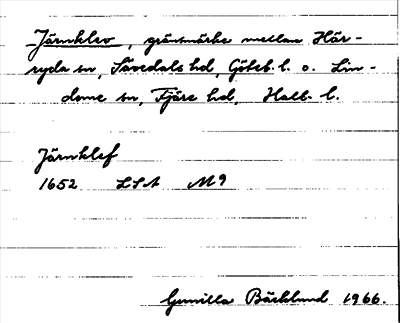 Järnklev, gränsmärke mellan Här-
ryda sn, Sävedals hd, Göteb. l. o. Lin-
dome sn, Fjäre hd, Hall. l.
Järnklef
1652 LSA M9
Gunilla Bäcklund 1966.